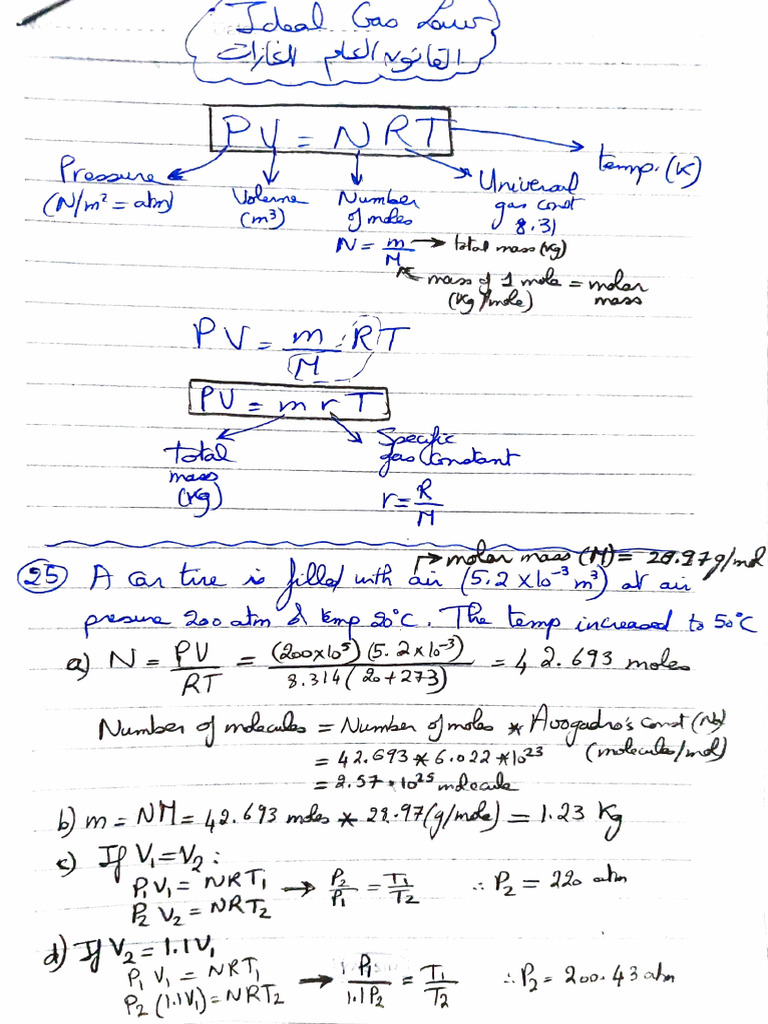 Ideal Gas Law
القانون العام للغازات
PV = NRT
temp. (K)
Pressure
(N/m² = atm)
Volume
(m³)
Number
of moles
N = m/M
Universal
gas const
8.31
total mass (kg)
mass of 1 mole = molar
mass
(kg/mole)
PV = m/M RT
PV = m r T
total
mass
(kg)
Specific
gas Constant
r = R/M
molar mass (M) = 28.97 g/mol
25 A car tire is filled with air (5.2 × 10⁻³ m³) at air
pressure 200 atm & temp 20°C. The temp increased to 50°C
a) N = PV/RT = (200×10⁵)(5.2×10⁻³)/8.314(20+273) = 42.693 moles
Number of molecules = Number of moles * Avogadro's const (NA)
(molecules/mol)
= 42.693 * 6.022 * 10²³
= 2.57 * 10²⁵ molecule
b) m = NM = 42.693 moles * 28.97 (g/mole) = 1.23 Kg
c) If V₁ = V₂ :
P₁V₁ = NRT₁ → P₂/P₁ = T₁/T₂ ∴ P₂ = 220 atm
P₂ V₂ = NRT₂
d) If V₂ = 1.1V₁
P₁ V₁ = NRT₁ → P₁/1.1P₂ = T₁/T₂ ∴ P₂ = 200.43 atm
P₂ (1.1V₁) = NRT₂